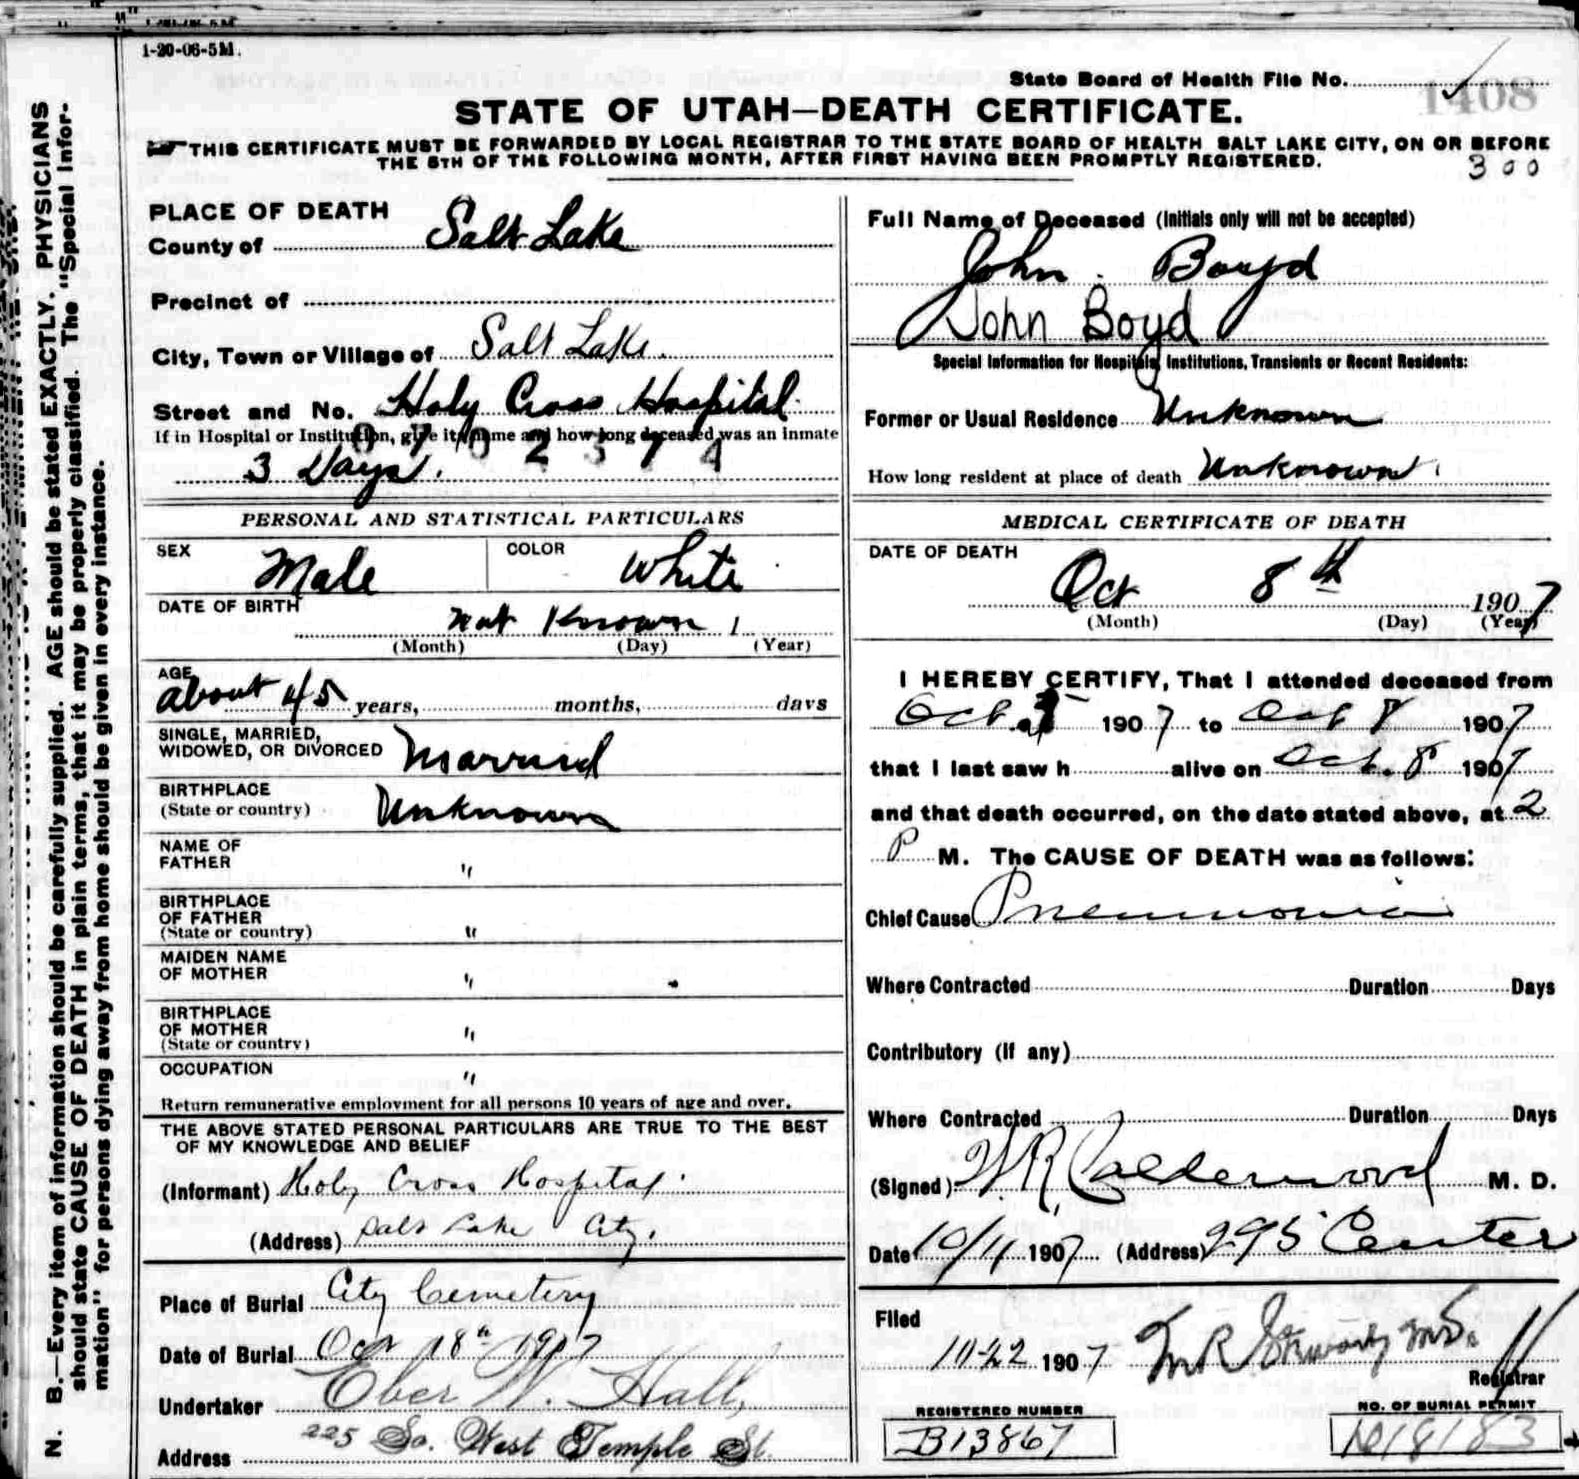 1-20-06-5M.
State Board of Health File No. 1408
STATE OF UTAH—DEATH CERTIFICATE.
THIS CERTIFICATE MUST BE FORWARDED BY LOCAL REGISTRAR TO THE STATE BOARD OF HEALTH SALT LAKE CITY, ON OR BEFORE
THE 5TH OF THE FOLLOWING MONTH, AFTER FIRST HAVING BEEN PROMPTLY REGISTERED.
300
N. B.—Every item of information should be carefully supplied. AGE should be stated EXACTLY. PHYSICIANS
should state CAUSE OF DEATH in plain terms, that it may be properly classified. The "Special Infor-
mation" for persons dying away from home should be given in every instance.
PLACE OF DEATH
County of Salt Lake
Precinct of
City, Town or Village of Salt Lake.
Street and No. Holy Cross Hospital
If in Hospital or Institution, give its name and how long deceased was an inmate
3 Days.
PERSONAL AND STATISTICAL PARTICULARS
SEX Male COLOR White
DATE OF BIRTH Not Known 1
(Month) (Day) (Year)
AGE about 45 years, months, days
SINGLE, MARRIED,
WIDOWED, OR DIVORCED Married
BIRTHPLACE
(State or country) Unknown
NAME OF
FATHER "
BIRTHPLACE
OF FATHER
(State or country) "
MAIDEN NAME
OF MOTHER "
BIRTHPLACE
OF MOTHER
(State or country) "
OCCUPATION "
Return remunerative employment for all persons 10 years of age and over.
THE ABOVE STATED PERSONAL PARTICULARS ARE TRUE TO THE BEST
OF MY KNOWLEDGE AND BELIEF
(Informant) Holy Cross Hospital
(Address) Salt Lake City.
Place of Burial City Cemetery
Date of Burial Oct 18th 1907
Undertaker Eber W. Hall,
Address 225 So. West Temple St.
Full Name of Deceased (Initials only will not be accepted)
John Boyd
John Boyd
Special Information for Hospitals, Institutions, Transients or Recent Residents:
Former or Usual Residence Unknown
How long resident at place of death Unknown
MEDICAL CERTIFICATE OF DEATH
DATE OF DEATH
Oct 8th 1907
(Month) (Day) (Year)
I HEREBY CERTIFY, That I attended deceased from
Oct. 5 1907 to Oct 8 1907
that I last saw h alive on Oct. 8 1907
and that death occurred, on the date stated above, at 2
P M. The CAUSE OF DEATH was as follows:
Chief Cause Pneumonia
Where Contracted Duration Days
Contributory (if any)
Where Contracted Duration Days
(Signed) W. R. Calderwood M. D.
Date 10/11 1907 (Address) 295 Center
Filed
10-22 1907 M R Stewart MD.
Registrar
REGISTERED NUMBER
B13867
NO. OF BURIAL PERMIT